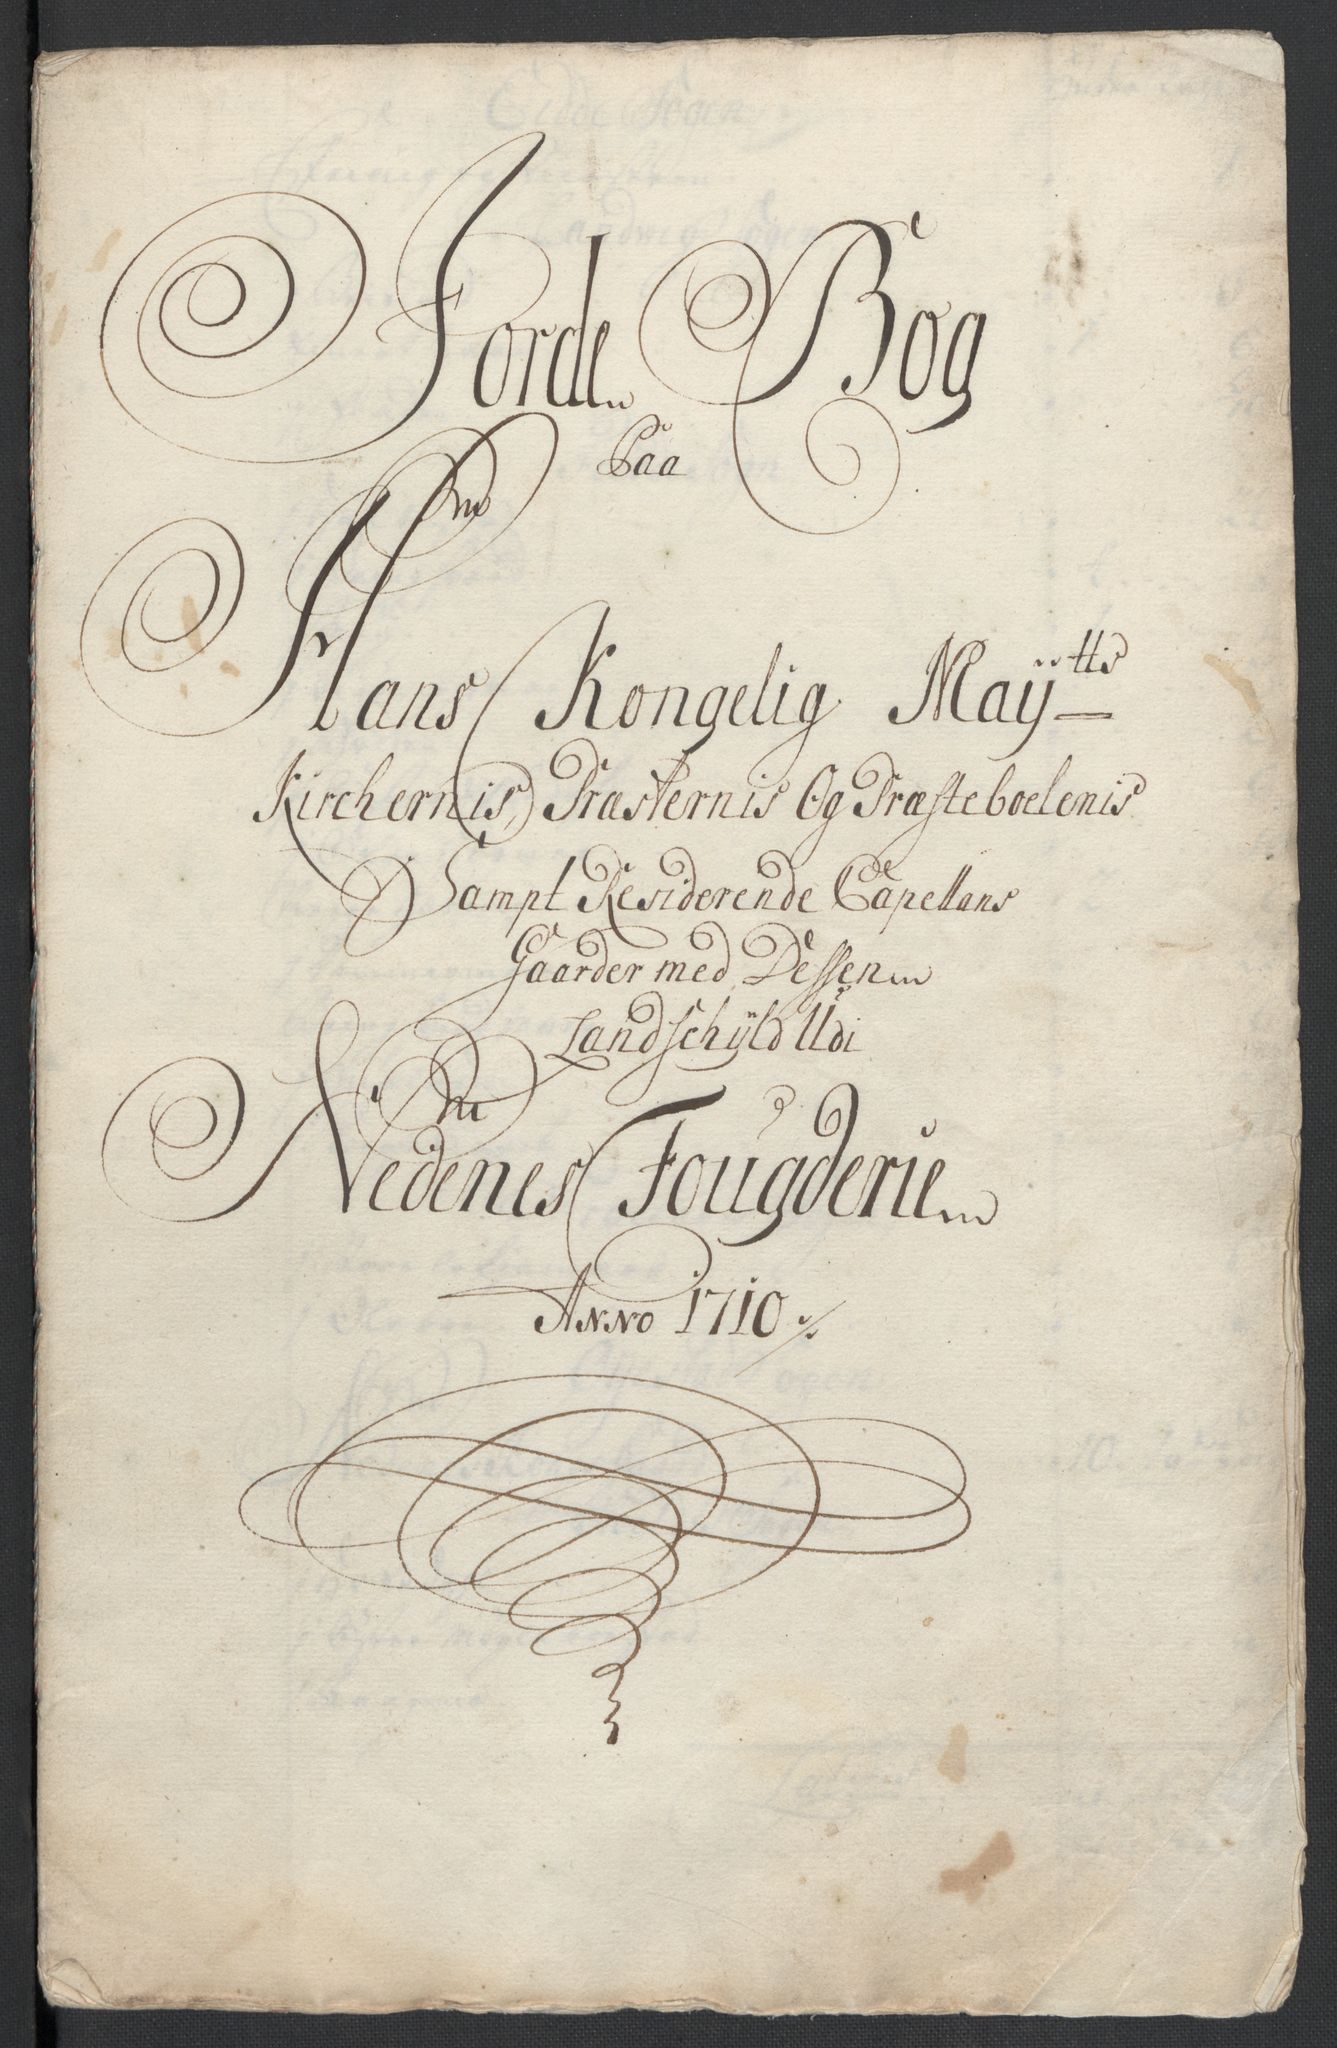 Jorde Bog
Paa
Hans Kongelig Maÿtts
Kirchernis, Præsternis Og Præsteboelenis
Sampt Residerende Capellans
Gaarder med Dessen
Landschÿld Udi
Nedenes Fougderie
Anno 1710